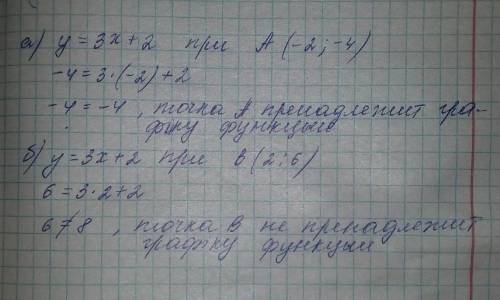 а) y = 3x + 2 при A (-2; -4)
-4 = 3·(-2) + 2
-4 = -4, точка A пренадлежит гра-
фику функцыи
б) y = 3x + 2 при B (2; 6)
6 = 3·2 + 2
6 ≠ 8, точка B не пренадлежит
графику функцыи